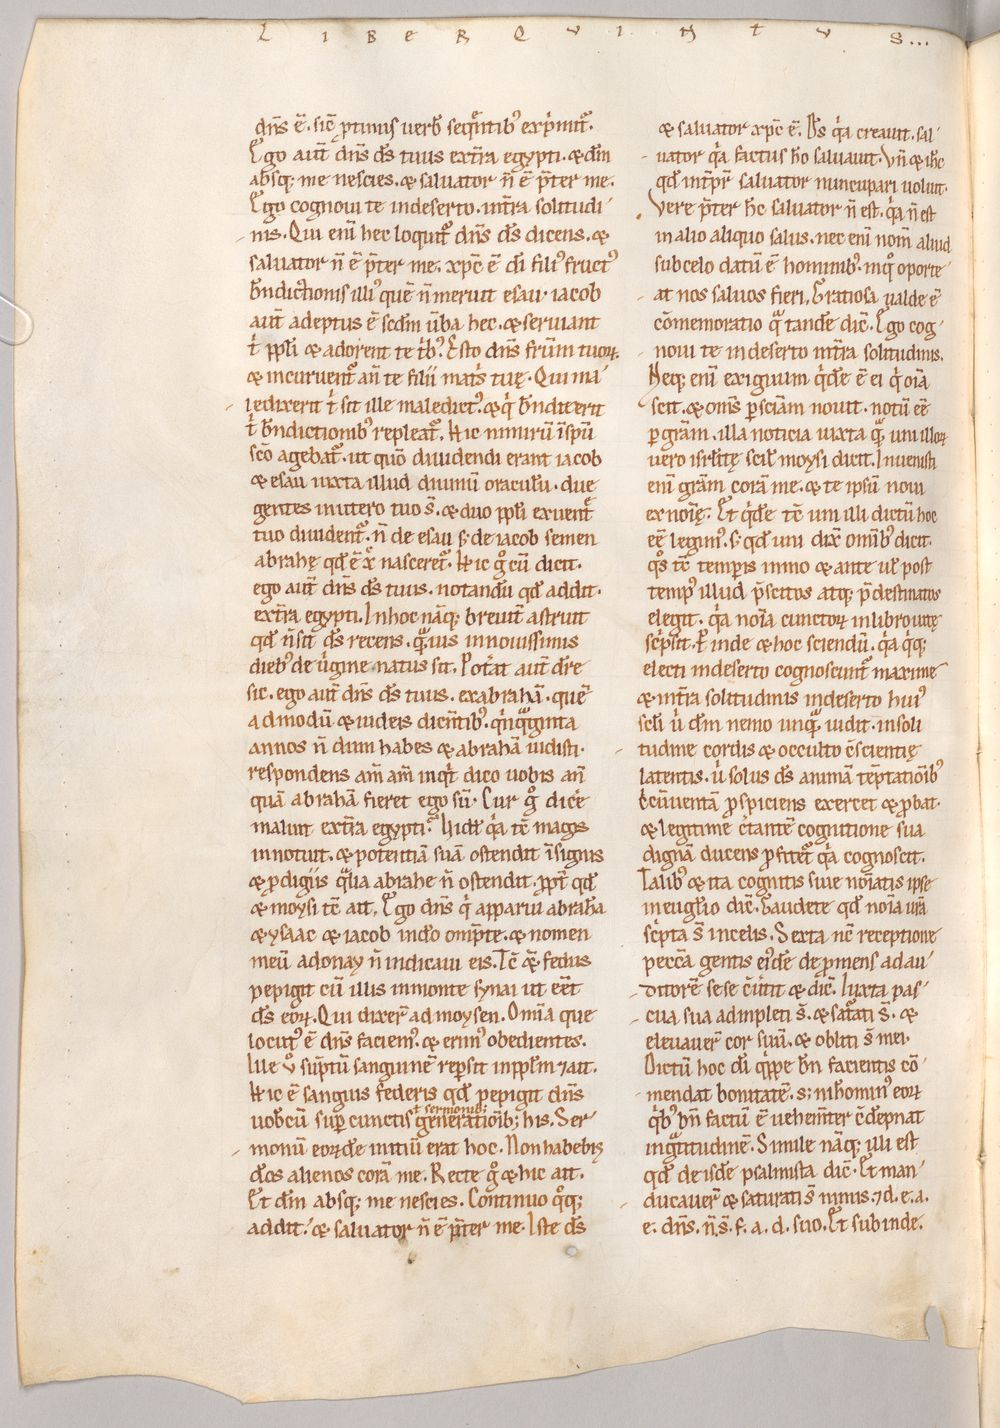 LIBER QVINTVS...
dn̄s ē. sic̄ ꝓtinus uerb̄ seq̄ntibꝰ exp̄mit᷑.
Ego aut̄ dn̄s d̄s tuus ext̄ra egypti. & dm̄
absq; me nescies. & salvator n̄ ē p̄ter me.
Ego cognoui te indeserto. int̄ra solitudi
nis. Qui eni hec loquit᷑ dn̄s d̄s dicens. &
saluator n̄ ē p̄ter me. xp̄c ē di filiꝰ fructꝰ
b̄ndictionis illiꝰ quē n̄ meruit esau. iacob
aut̄ adeptus ē scdm̄ ūba hec. & seruiant
t̄ ppl̄i & adorent te t̄bꝰ. Esto dn̄s fr̄um tuoꝝ.
& incuruent᷑ an̄ te filii mat̄s tuę. Qui ma
ledixerit t̄ sit ille maledictꝰ. & q̄ b̄ndixerit
t̄ b̄ndictionibꝰ repleat᷑. Hic nimirū īsp̄u
sc̄o agebat᷑. ut quō diuidendi erant iacob
& esau iuxta illud diuinū oraculū. due
gentes inutero tuo s̄. & duo ppl̄i exuent̄
tuo diuident᷑. n̄ de esau s; de iacob semen
abrahę qd̄ ē x̄ nasceret᷑. Hic g̊ cū dicit.
ego aut̄ dn̄s d̄s tuus. notandū qd̄ addit.
ext̄ra egypti. Inhoc nāq; breuit̄ astruit
qd̄ n̄ sit d̄s recens. q̄uis innouissimis
diebꝰ de ūgine natus sit. Poꝉat aut̄ dr̄e
sic. ego aut̄ dn̄s d̄s tuus. exabrahā. quē
admodū & iudeis dicn̄tibꝰ. q̄nq̄ginta
annos n̄ dum habes & abrahā uidisti.
respondens am̄ am̄ inq̄t dico uobis an̄
quā abrahā fieret ego sū. Cur g̊ dice
maluit ext̄ra egypti. Uidel̄ q̄a tc̄ magis
innotuit. & potentiā suā ostendit īsignis
& ꝓdigiis q̄lia abrahe n̄ ostendit. ppt̄ qd̄
& moysi tc̄ ait. Ego dn̄s q̄ apparui abrahā
& ysaac & iacob indo omp̄te. & nomen
meū adonay n̄ indicaui eis. Tc̄ & fedus
pepigit cū illis inmonte synai ut eēt
d̄s eoꝝ. Qui dixer̄ ad moysen. Omīa que
locutꝰ ē dn̄s faciemꝰ. & erimꝰ obedientes.
Ille ů sūptū sanguinē repsit inppl̄m ⁊ ait.
Hic ē sanguis federis qd̄ pepigit dn̄s
uobcū sup cunctis generatiōib; his. Ser
ꝉ sermonib;
monū eoꝝde initiū erat hoc. Non habebis
d̄os alienos corā me. Recte g̊ & hic ait.
Et dm̄ absq; me nescies. Continuo q̊q;
addit. & saluator n̄ ē p̄ter me. Iste d̄s
& saluator xp̄c ē. D̄s q̄a creauit. sal
uator q̄a factus ho saluauit. Vn̄ & ih̄c
qd̄ intp̄r saluator nuncupari uoluit.
Vere p̄ter hc̄ saluator n̄ est. q̄a n̄ est
in alio aliquo salus. nec eni nom̄ aliud
subcelo datū ē hominibꝰ. inq̊ oporte
at nos saluos fieri. Gratiosa ualde ē
cōmemoratio q̄ tande dic̄. Ego cog
noui te indeserto int̄ra solitudinis.
Neq; eni exiguum q̄de ē ei q̄ oīa
scit. & omīs ꝑ sciam nouit. notū eē
ꝑ gr̄am. illa noticia iuxta q̄ uni illoꝝ
uero isrl̄itę scil̄ moysi dicit. Inuenisti
eni gr̄am corā me. & te ipsū noui
ex noīe. Et q̄de tc̄ uni illi dictū hoc
eē legimꝰ. s; qd̄ uni dix̄ omībꝰ dicit.
q̊s tc̄ temporis immo & ante ul̄ post
tempꝰ illud p̄scitos atq; p̄destinatos
elegit. q̄a noīa cunctoꝝ inlibro uitę
scp̄sit. Et inde & hoc sciendū. q̄a q̄q;
electi indeserto cognoscunt᷑ maxime
& int̄ra solitudinis indeserto huiꝰ
scl̄i ů dm̄ nemo unq̄ uidit. insoli
tudine cordis & occulto c̄scientię
latentis. ů solus d̄s animā tēptatiōibꝰ
c̄cūuentā ꝓspiciens exercet & ꝓbat.
& legitime c̄tantē cognitione sua
dignā ducens ꝓfitet᷑ q̄a cognoscit.
Talibꝰ & ita cognitis siue noīatis ipse
in euglīo dic̄. Gaudete qd̄ noīa ur̄a
scp̄ta s̄ incelis. Sexta nc̄ receptione
peccā gentis eiꝰde de ꝓmens ad au
ditorē sese c̄uꝉit & dic̄. Iuxta pas
cua sua adimpleti s̄. & sat᷑ati s̄. &
eleuauer̄ cor suū. & obliti s̄ mei.
Dictū hoc di q̄ppe b̄n facientis cō
mendat bonitatē. s; & hominꝰ eoꝝ
q̄bꝰ b̄n factū ē uehem̄ter c̄depnat
ing̅titudinē. Simile nāq; illi est
qd̄ de isde psalmista dic̄. Et man
ducauer̄ & saturati s̄ nimis. ⁊ d. e. a.
e. dn̄s. n̄. s̄. f. a. d. suo. Et subinde.